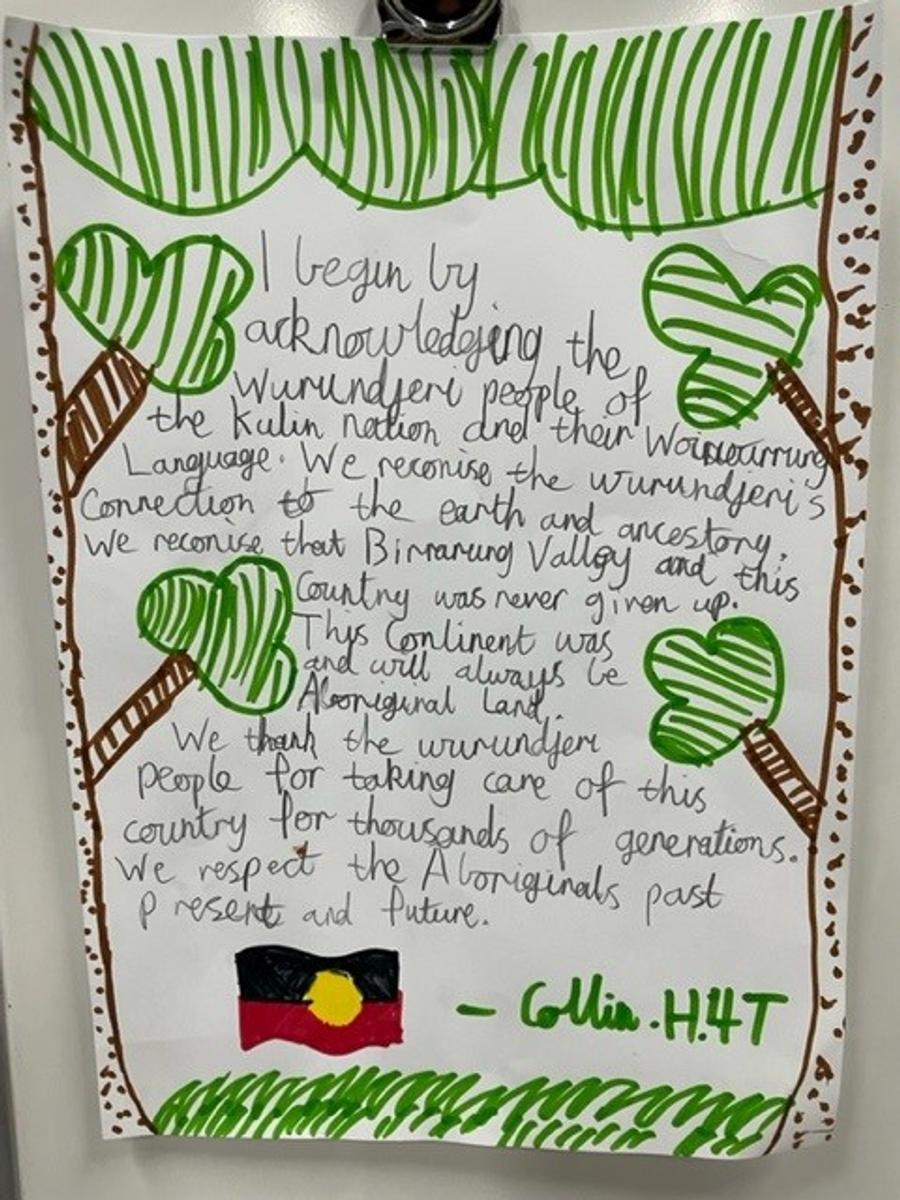 I begin by
acknowledging the
Wurundjeri people of
the Kulin nation and their
Language. We reconise the wurundjeri's
Connection to the earth and ancestory.
We reconise that Birrarung Valley and this
Country was never given up.
This Continent was
and will always be
Aboriginal Land.
We thank the wurundjeri
people for taking care of this
country for thousands of generations.
We respect the Aboriginals past
Present and future.
- Collin.H.4T